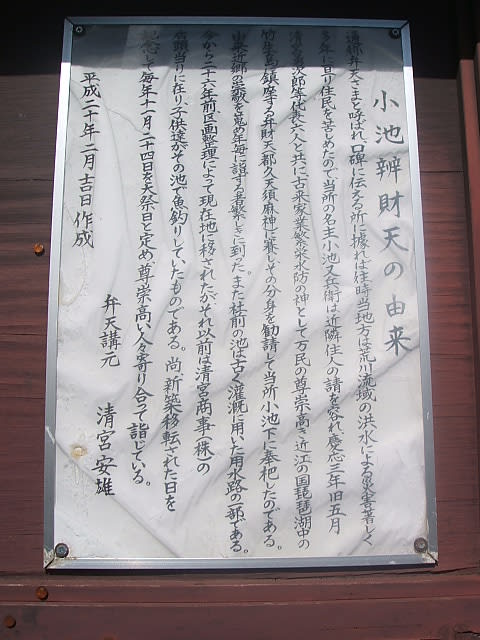 小池辨財天の由来
通称弁天さまと呼ばれ、口碑に伝える所に據れば往時当地方は荒川流域の洪水による災害著しく
多年に亘り住民を苦しめたので、当所の名主小池又兵衛は近隣住人の請を容れ慶応三年旧五月
清宮喜次郎等代表六人と共に古来家業繁栄水防の神として万民の尊崇高き近江の国琵琶湖中の
竹生島に鎮座する弁財天都久夫須麻神に賽しその分身を勧請して当所小池下に奉祀したのである。
由来近郷の崇敬を蒐め年毎に詣する者繁しきに到った。また社前の池は古く灌漑に用いた用水路の一部である。
今から二十六年前区画整理によって現在地に移されたがそれ以前は清宮商事(株)の
店頭当りに在り、子供達がその池で魚釣りしていたものである。尚、新築移転された日を
記念して毎年十一月二十四日を大祭日と定め、尊崇高い人々寄り合って詣じている。
平成二十年二月吉日作成
弁天講元 清宮安雄